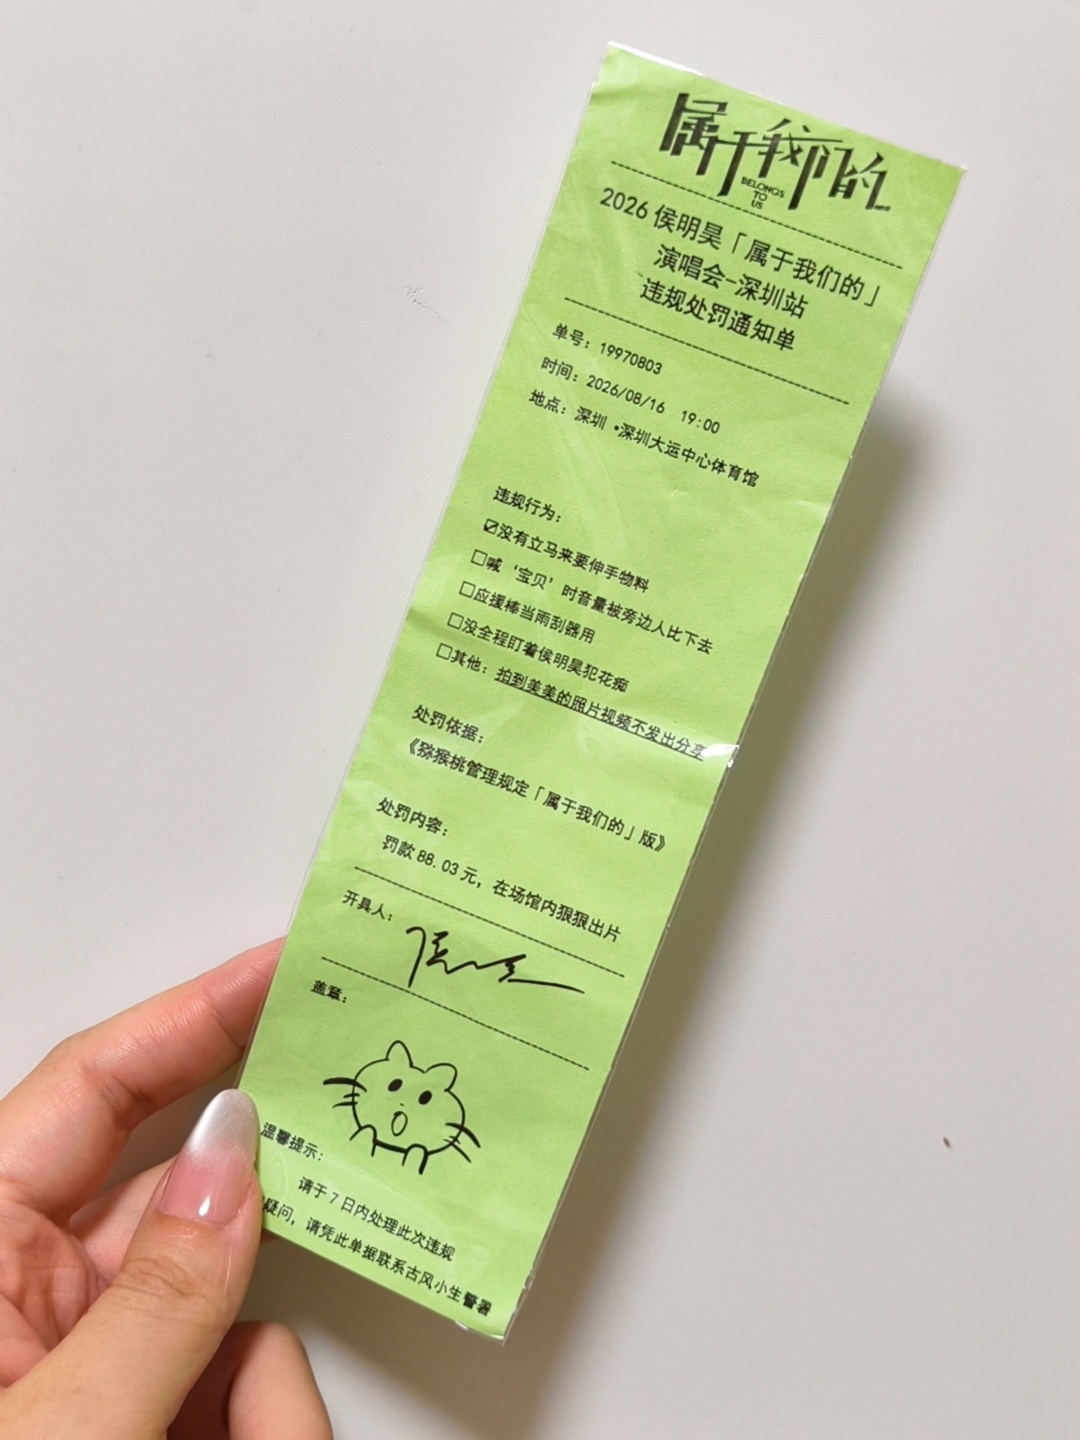 属于我们的
BELONGS
TO
US
2026 侯明昊「属于我们的」
演唱会-深圳站
违规处罚通知单
单号：19970803
时间：2026/08/16 19:00
地点：深圳 •深圳大运中心体育馆
违规行为：
☑没有立马来要伸手物料
☐喊‘宝贝’时音量被旁边人比下去
☐应援棒当雨刮器用
☐没全程盯着侯明昊犯花痴
☐其他：拍到美美的照片视频不发出分享
处罚依据：
《猕猴桃管理规定「属于我们的」版》
处罚内容：
罚款 88.03 元，在场馆内狠狠出片
开具人：
盖章：
温馨提示：
请于 7 日内处理此次违规
疑问，请凭此单据联系古风小生警署